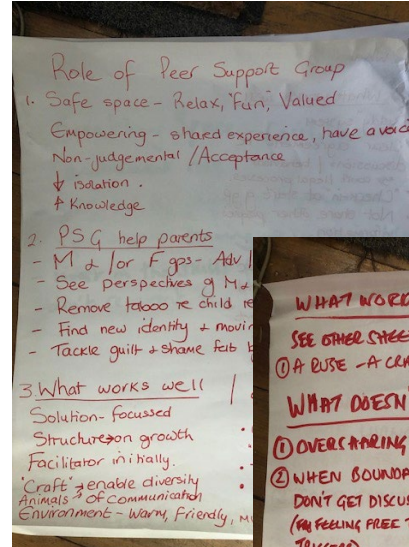 Role of Peer Support Group
1. Safe space - Relax, 'Fun', Valued
Empowering - shared experience, have a voice
Non-judgemental / Acceptance
↓ isolation.
↑ Knowledge
2. PSG help parents
- M & / or F gps - Adv /
- See perspectives of M &
- Remove taboo re child re
- Find new identity & movin
- Tackle guilt & shame felt b
3. What works well
Solution-focussed
Structure → on growth
Facilitator initially.
'Craft' → enable diversity
Animals → of communication
Environment - Warm, friendly,
WHAT WORK
SEE OTHER SHEE
① A RUSE - A CRA
WHAT DOESN
① OVERSHARING
② WHEN BOUNDA
DON'T GET DISCUS
FEELING FREE